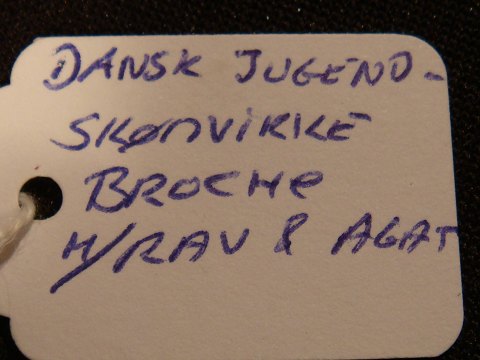 DANSK JUGEND-
SKØNVIRKE
BROCHE
M/RAV & AGAT